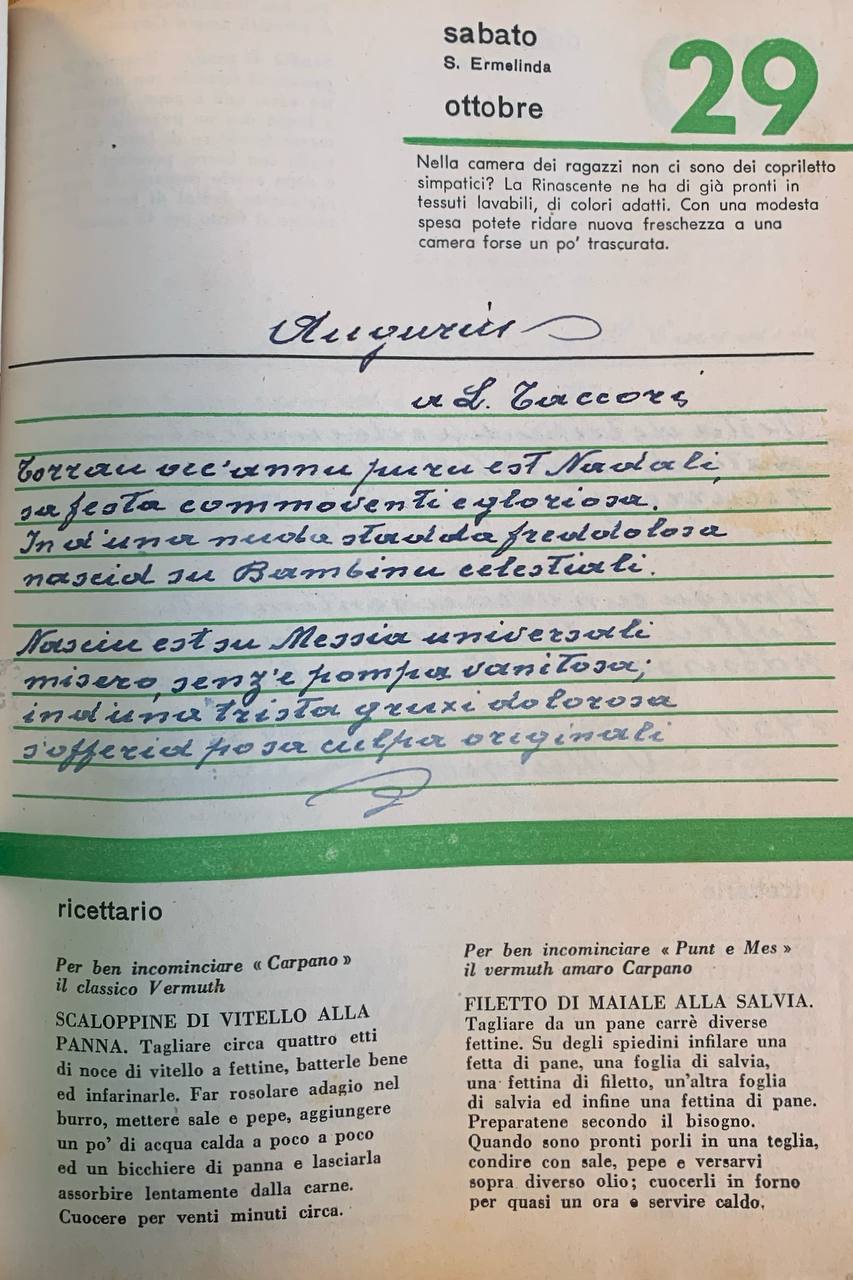 sabato
S. Ermelinda
ottobre
29
Nella camera dei ragazzi non ci sono dei copriletto
simpatici? La Rinascente ne ha di già pronti in
tessuti lavabili, di colori adatti. Con una modesta
spesa potete ridare nuova freschezza a una
camera forse un po' trascurata.
Augurius
a L. Taccori
Torrau occ'annu puru est Nadali,
sa festa commoventi e gloriosa.
In d'una nuda stadda freddolosa
nascid su Bambinu celestiali.
Nasciu est su Messia universali
misero, senz'e pompa vanitosa;
in d'una trista gruxi dolorosa
s'offerid po sa culpa originali
ricettario
Per ben incominciare « Carpano »
il classico Vermuth
SCALOPPINE DI VITELLO ALLA
PANNA. Tagliare circa quattro etti
di noce di vitello a fettine, batterle bene
ed infarinarle. Far rosolare adagio nel
burro, mettere sale e pepe, aggiungere
un po' di acqua calda a poco a poco
ed un bicchiere di panna e lasciarla
assorbire lentamente dalla carne.
Cuocere per venti minuti circa.
Per ben incominciare « Punt e Mes »
il vermuth amaro Carpano
FILETTO DI MAIALE ALLA SALVIA.
Tagliare da un pane carrè diverse
fettine. Su degli spiedini infilare una
fetta di pane, una foglia di salvia,
una fettina di filetto, un'altra foglia
di salvia ed infine una fettina di pane.
Preparatene secondo il bisogno.
Quando sono pronti porli in una teglia,
condire con sale, pepe e versarvi
sopra diverso olio; cuocerli in forno
per quasi un ora e servire caldo.